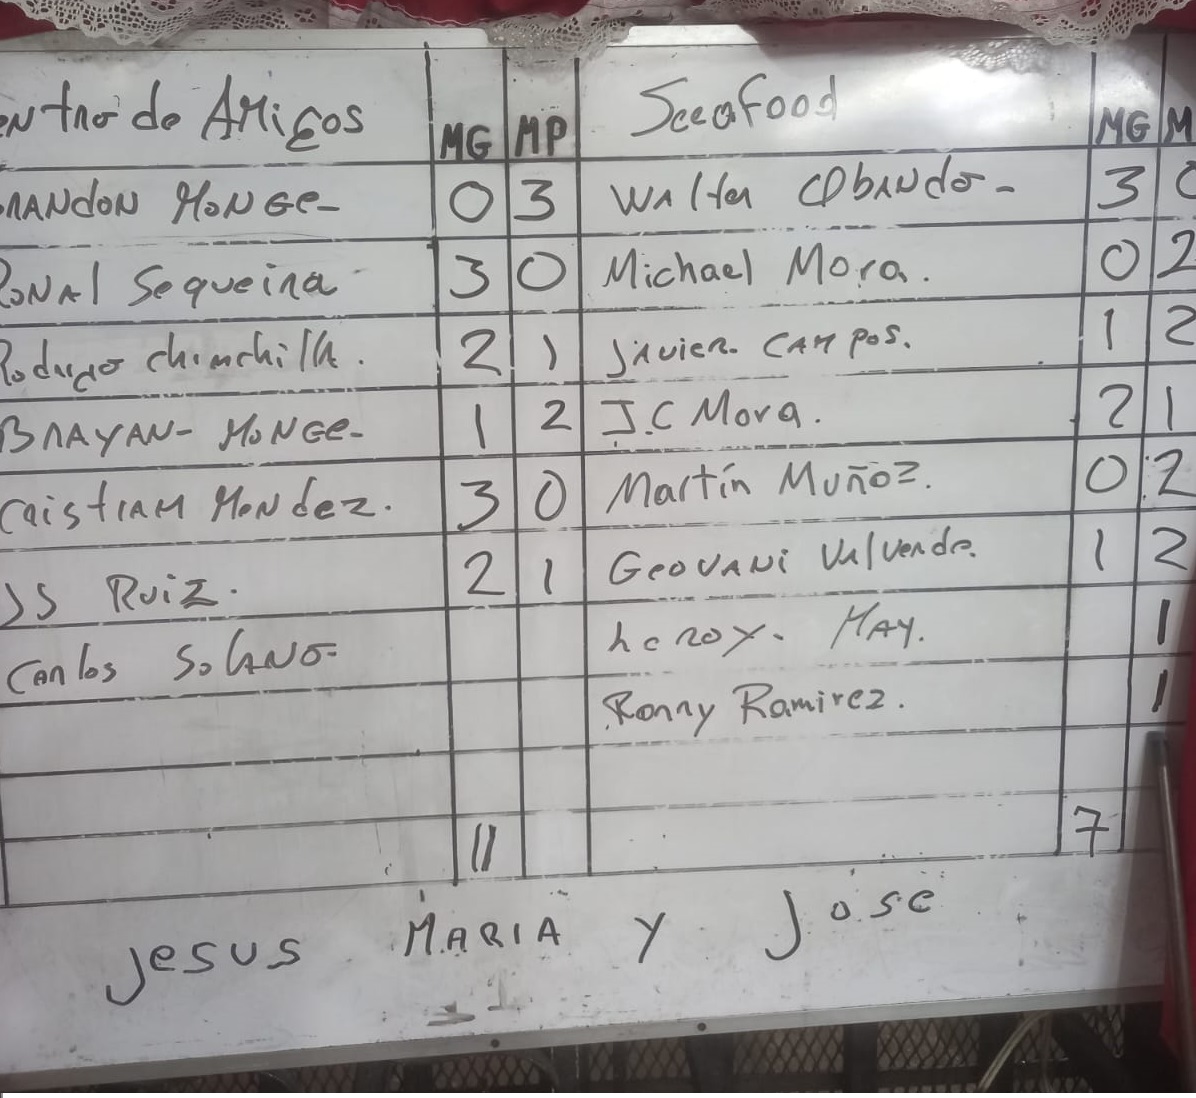 entro de Amigos MG MP Seeafood MG M
BRANdoN MoNGe- 0 3 WAlter ObANdo- 3 0
RoNAl Sequeira 3 0 Michael Mora. 0 2
Rodrigo chinchilla. 2 1 JAvier CAMpos. 1 2
BRAYAN- MoNGe- 1 2 J.C Mora. 2 1
CRistiAM MeNdez. 3 0 Martín Muñoz. 0 2
JS Ruiz. 2 1 GeovANi VAlverde. 1 2
CaRlos SolANo- Leroy. MAY. 1
Ronny Ramirez. 1
11 7
Jesus MARIA Y Jose